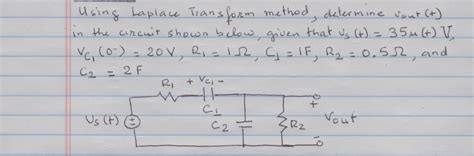 Using Laplace Transform method, determine vout(t)
in the circuit shown below, given that vs(t) = 35u(t) V,
vc1(0-) = 20V, R1 = 1Ω, C1 = 1F, R2 = 0.5Ω, and
C2 = 2F
R1 + vc1 -
C1
+
Us(t)
C2
R2
Vout
-